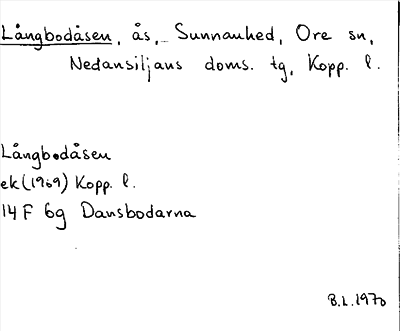 Långbodåsen, ås, Sunnanhed, Ore sn,
Nedansiljans doms. tg, Kopp. l.
Långbodåsen
ek (1969) Kopp. l.
14 F 6g Dansbodarna
B.L. 1970